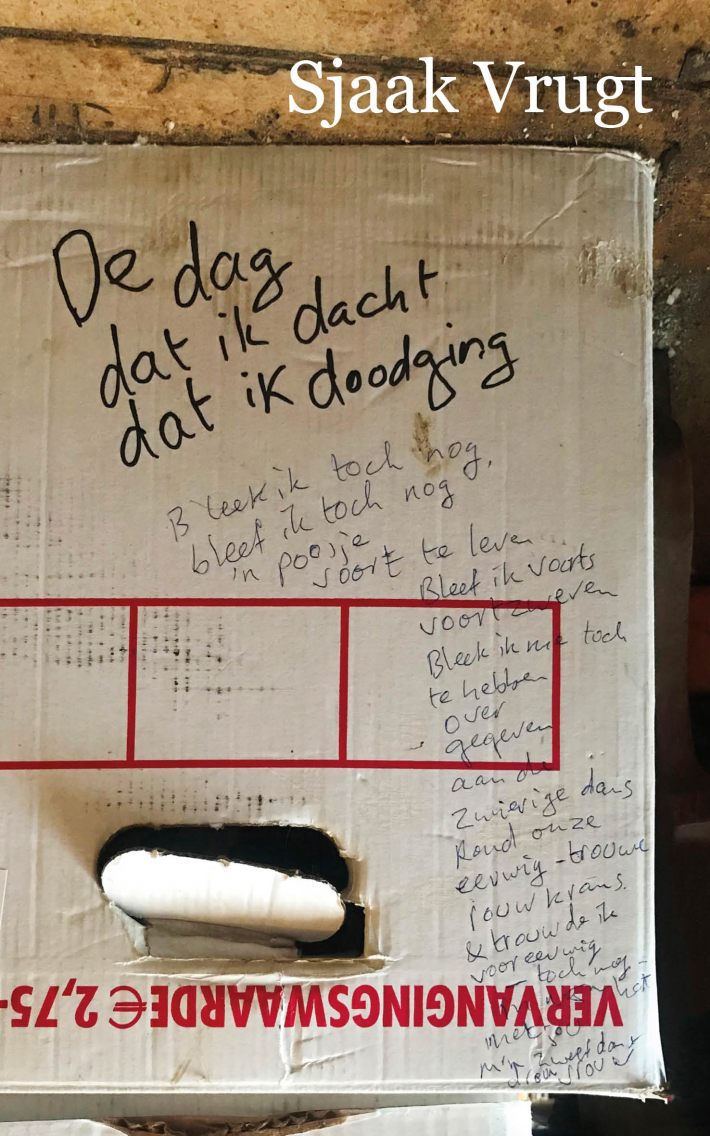 Sjaak Vrugt
De dag
dat ik dacht
dat ik doodging
Bleek ik toch nog,
bleef ik toch nog
'n poosje
voort te leven
Bleef ik voorts
voortzweven
Bleek ik me toch
te hebben
over
gegeven
aan de
zwierige dans
Rond onze
eeuwig-trouwe
rouwkrans.
& trouwde ik
voor eeuwig
- toch nog -
met jou
m'n
VERVANGINGSWAARDE € 2,75